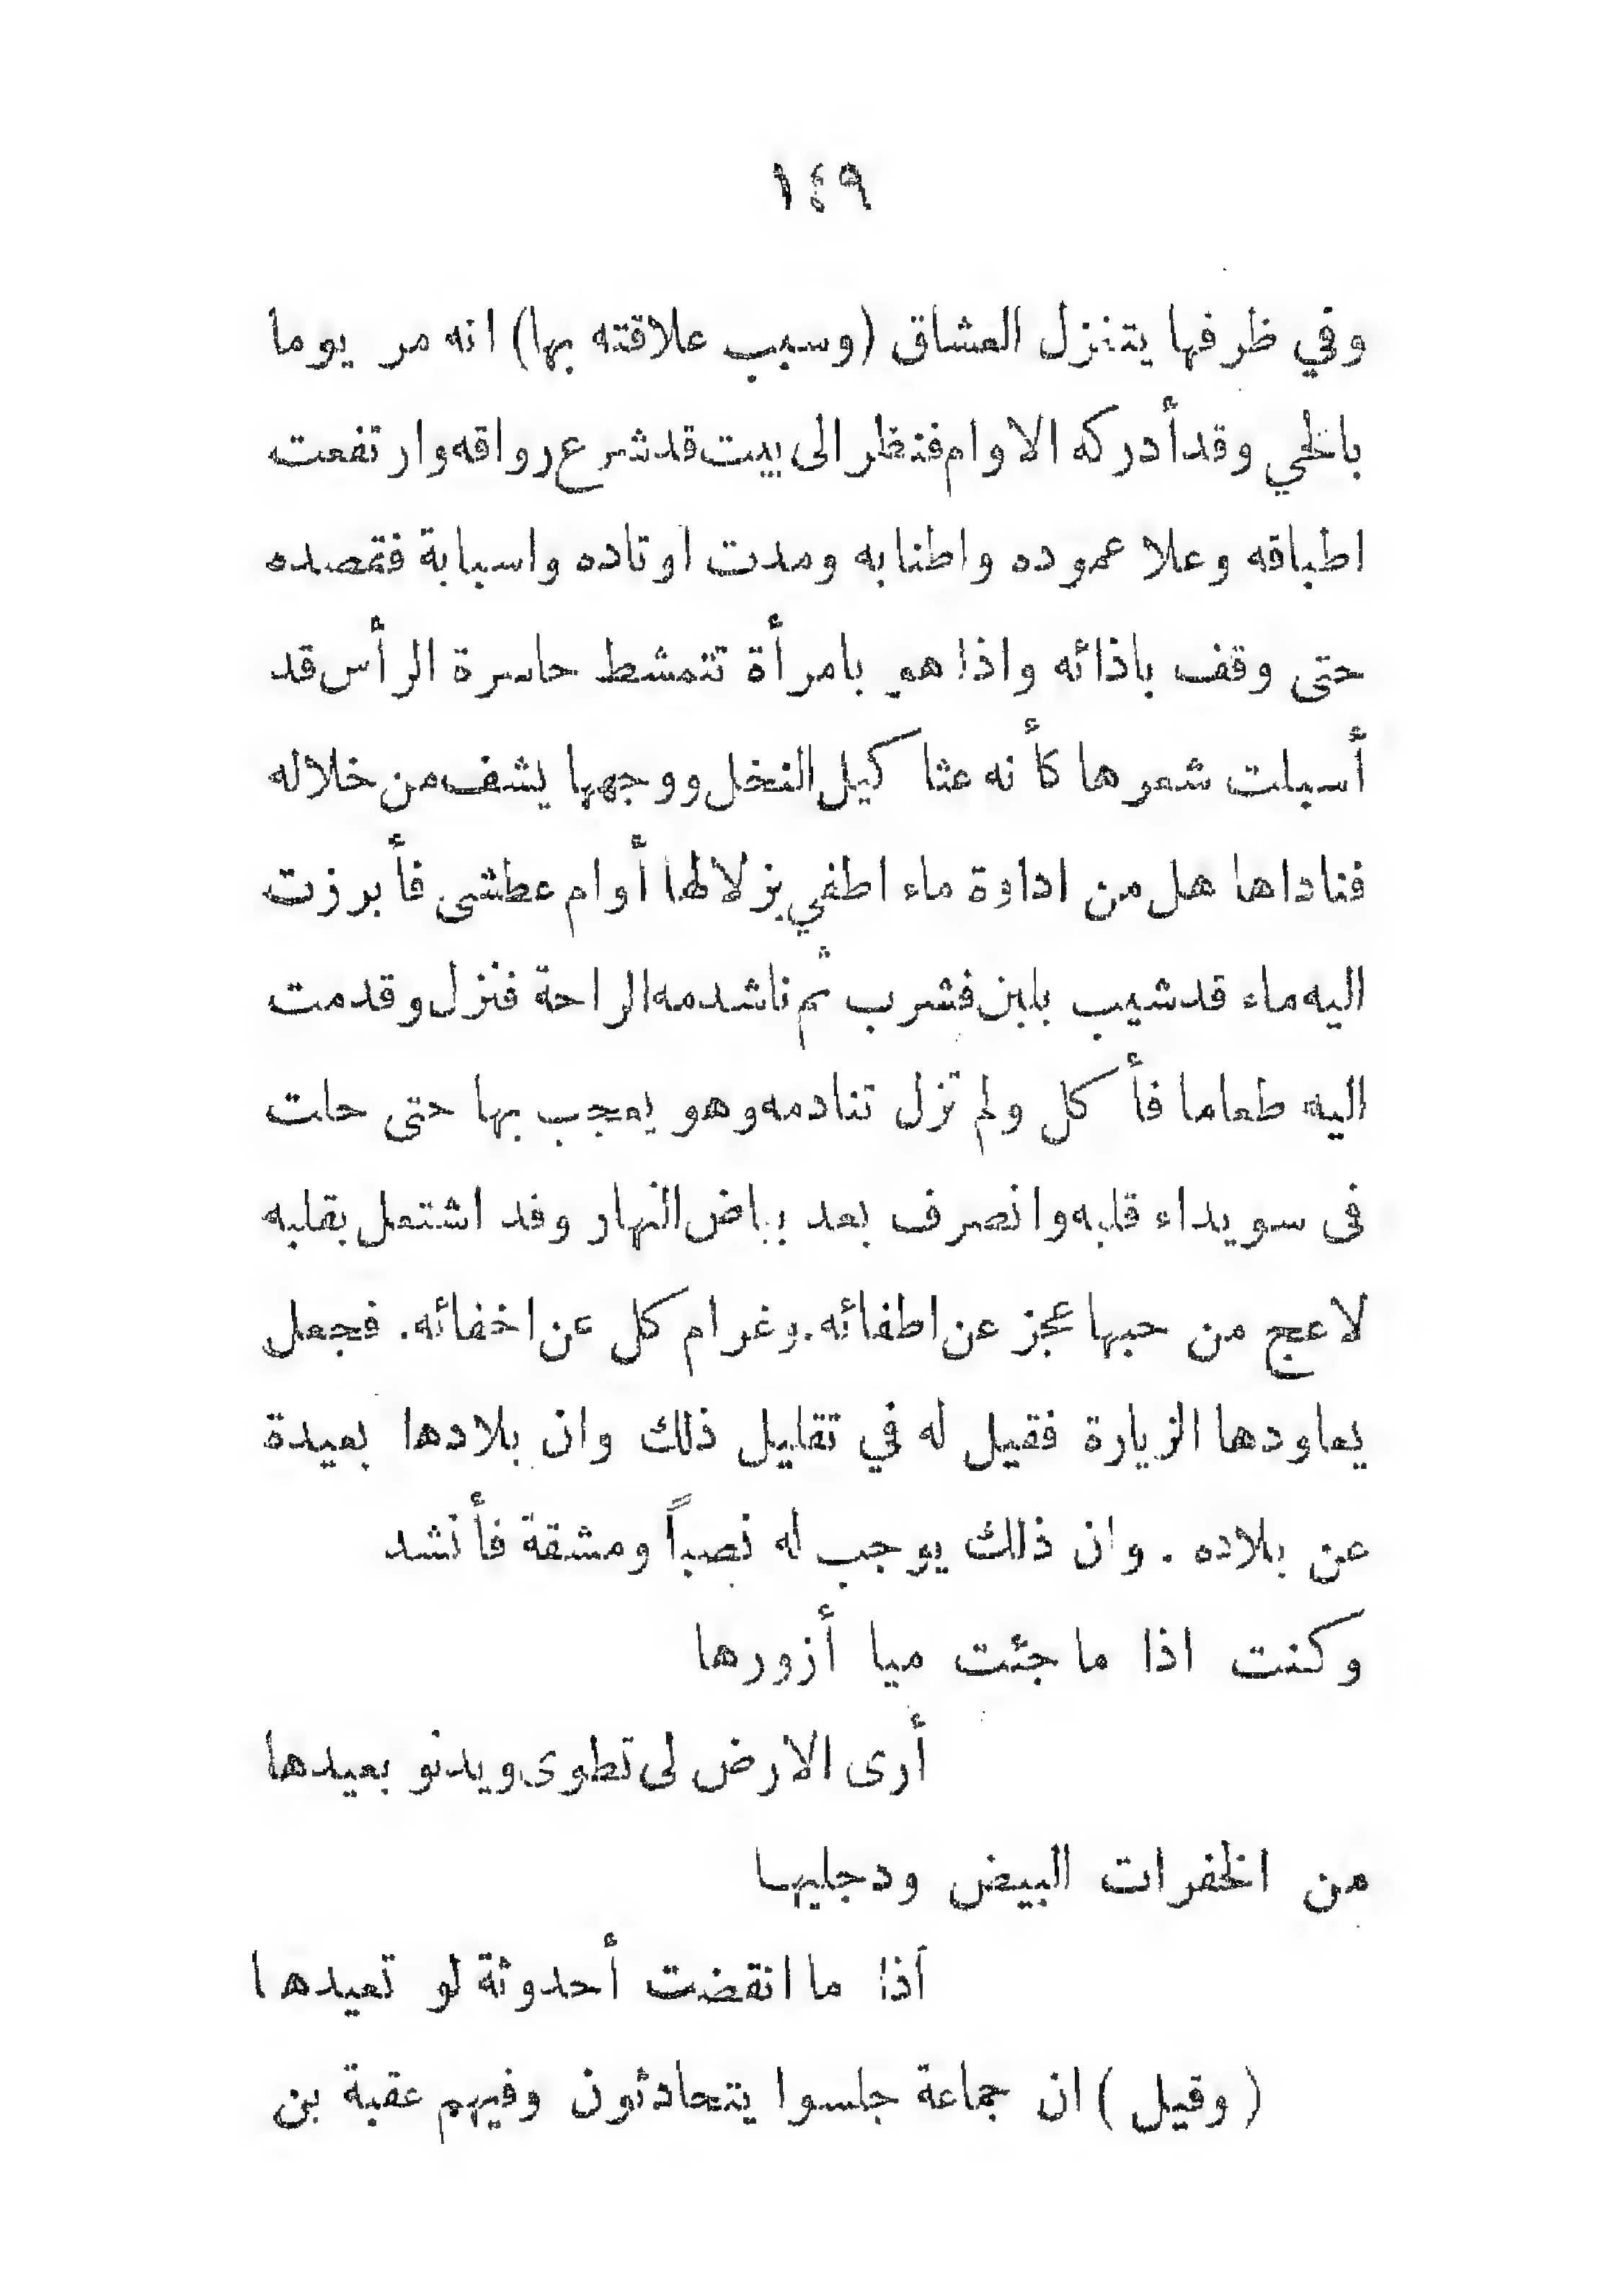 ١٤٩
وفي ظرفها يتغزل العشاق (وسبب علاقته بها) انه مر يوما
بالحي وقد أدركه الاوام فنظر الى بيت قد شرع رواقه وارتفعت
اطباقه وعلا عموده واطنابه ومدت اوتاده واسبابة فقصده
حتى وقف باذائه واذا هي بامرأة تتمشط حاسرة الرأس قد
أسبلت شعرها كأنه عثاكيل النخل ووجهها يشف من خلاله
فناداها هل من اداوة ماء اطفي بزلالها أوام عطشى فأبرزت
اليه ماء قد شيب بلبن فشرب ثم ناشدمه الراحة فنزل وقدمت
اليه طعاما فأكل ولم تزل تنادمه وهو يعجب بها حتى حلت
فى سويداء قلبه وانصرف بعد بياض النهار وفد اشتعل بقلبه
لاعج من حبها عجز عن اطفائه. وغرام كل عن اخفائه. فجعل
يعاودها الزيارة فقيل له في تقليل ذلك وان بلادها بعيدة
عن بلاده . وان ذلك يوجب له نصباً ومشقة فأنشد
وكنت اذا ما جئت ميا أزورها
أرى الارض لى تطوى ويدنو بعيدها
من الخفرات البيض ودجليها
أذا ما انقضت أحدوثة لو تعيدها
(وقيل) ان جماعة جلسوا يتحادثون وفيهم عقبة بن